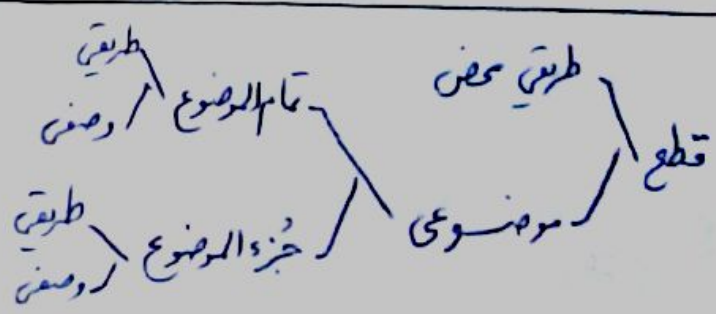 قطع
طريقي محض
موضوعی
تمام الموضوع
طريقي
وصفی
جُزء الموضوع
طريقي
وصفی